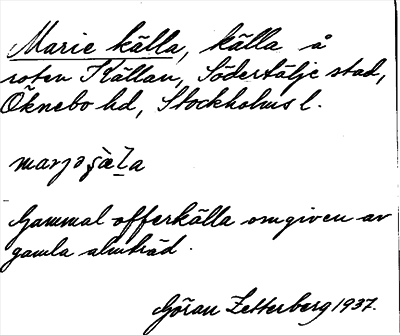 Marie källa, källa å
roten Källan, Södertälje stad,
Öknebo hd, Stockholms l.
Gammal offerkälla omgiven av
gamla almträd.
Göran Zetterberg 1937.